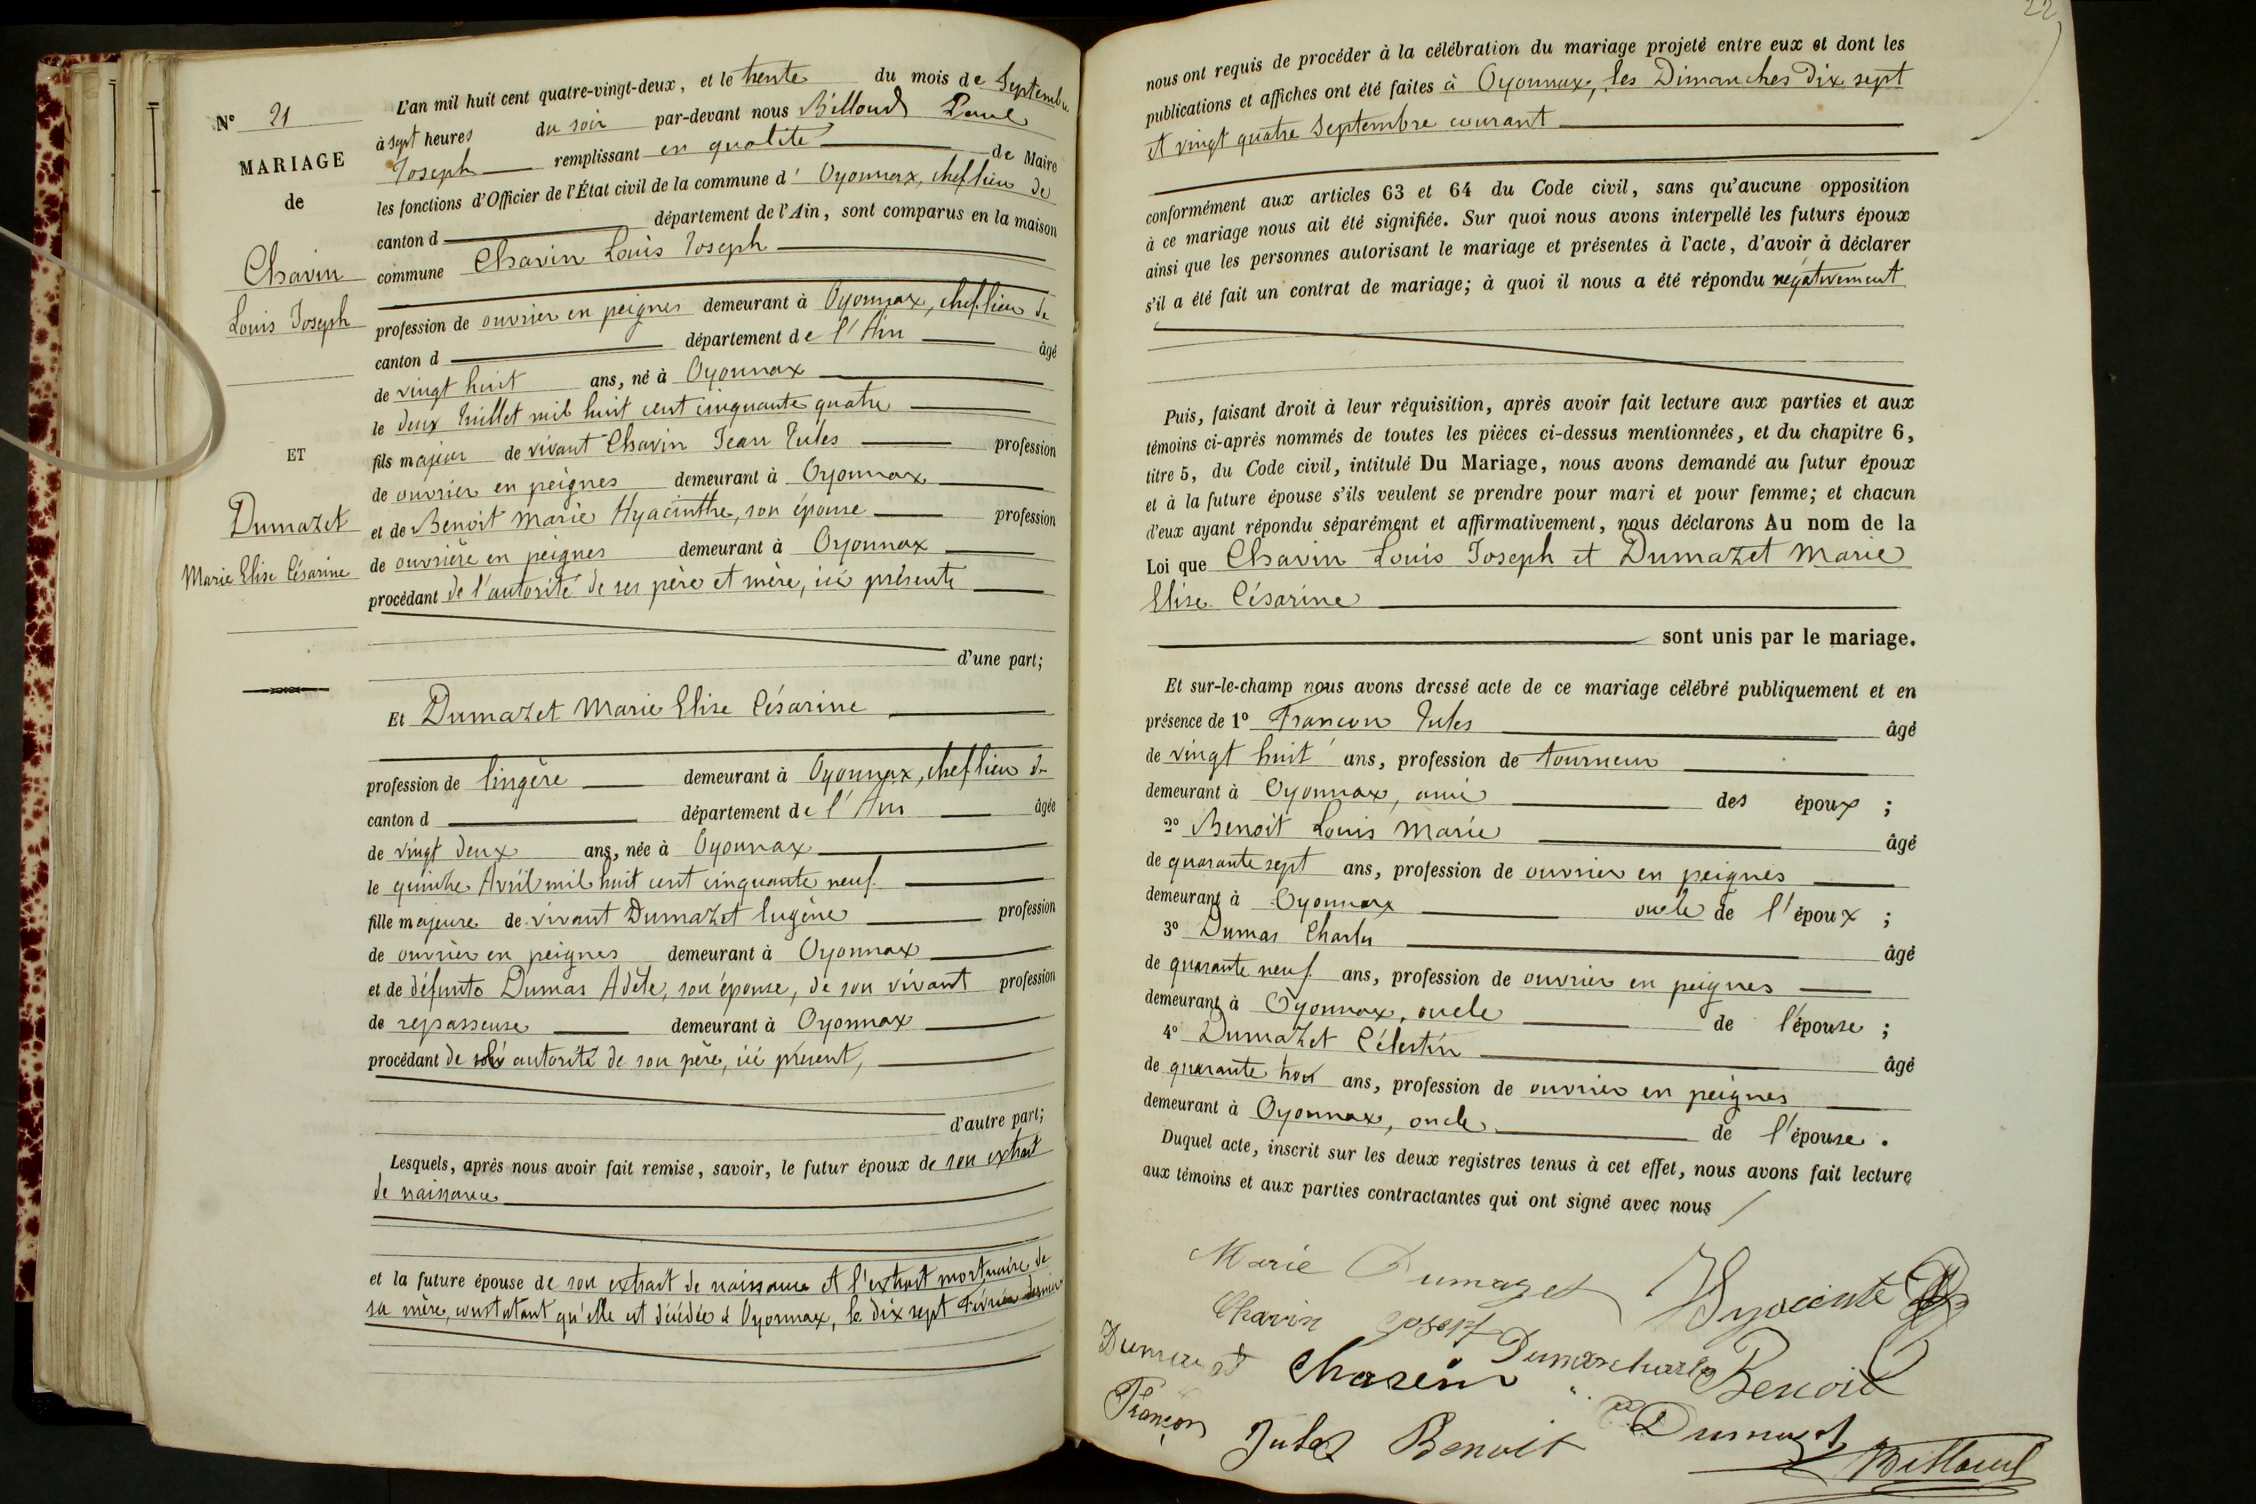 N° 21
MARIAGE
de
Chavin
Louis Joseph
ET
Dumazet
Marie Elise Césarine
L'an mil huit cent quatre-vingt-deux, et le trente du mois de Septembre
à sept heures du soir par-devant nous Billoud Paul
Joseph remplissant en qualité de Maire
les fonctions d'Officier de l'État civil de la commune d' Oyonnax, chef lieu de
canton d département de l'Ain, sont comparus en la maison
commune Chavin Louis Joseph
profession de ouvrier en peignes demeurant à Oyonnax, chef lieu de
canton d département de l'Ain âgé
de vingt huit ans, né à Oyonnax
le deux Juillet mil huit cent cinquante quatre
fils majeur de vivant Chavin Jean Jules profession
de ouvrier en peignes demeurant à Oyonnax
et de Benoit Marie Hyacinthe, son épouse profession
de ouvrière en peignes demeurant à Oyonnax
procédant de l'autorité de ses père et mère, ici présents
d'une part;
Et Dumazet Marie Elise Césarine
profession de lingère demeurant à Oyonnax, chef lieu de
canton d département de l'Ain âgée
de vingt deux ans, née à Oyonnax
le quinze Avril mil huit cent cinquante neuf
fille majeure de vivant Dumazet Eugène profession
de ouvrier en peignes demeurant à Oyonnax
et de défunte Dumas Adèle, son épouse, de son vivant profession
de repasseuse demeurant à Oyonnax
procédant de autorité de son père, ici présent,
d'autre part;
Lesquels, après nous avoir fait remise, savoir, le futur époux de son extrait
de naissance
et la future épouse de son extrait de naissance et l'extrait mortuaire de
sa mère, constatant qu'elle est décédée à Oyonnax, le dix sept Février dernier
22
nous ont requis de procéder à la célébration du mariage projeté entre eux et dont les
publications et affiches ont été faites à Oyonnax, les Dimanches dix sept
et vingt quatre Septembre courant
conformément aux articles 63 et 64 du Code civil, sans qu'aucune opposition
à ce mariage nous ait été signifiée. Sur quoi nous avons interpellé les futurs époux
ainsi que les personnes autorisant le mariage et présentes à l'acte, d'avoir à déclarer
s'il a été fait un contrat de mariage; à quoi il nous a été répondu négativement
Puis, faisant droit à leur réquisition, après avoir fait lecture aux parties et aux
témoins ci-après nommés de toutes les pièces ci-dessus mentionnées, et du chapitre 6,
titre 5, du Code civil, intitulé Du Mariage, nous avons demandé au futur époux
et à la future épouse s'ils veulent se prendre pour mari et pour femme; et chacun
d'eux ayant répondu séparément et affirmativement, nous déclarons Au nom de la
Loi que Chavin Louis Joseph et Dumazet Marie
Elise Césarine
sont unis par le mariage.
Et sur-le-champ nous avons dressé acte de ce mariage célébré publiquement et en
présence de 1° Françon Jules âgé
de vingt huit ans, profession de tourneur
demeurant à Oyonnax, ami des époux ;
2° Benoit Louis Marie âgé
de quarante sept ans, profession de ouvrier en peignes
demeurant à Oyonnax oncle de l'époux ;
3° Dumas Charles âgé
de quarante neuf ans, profession de ouvrier en peignes
demeurant à Oyonnax, oncle de l'épouse ;
4° Dumazet Célestin âgé
de quarante trois ans, profession de ouvrier en peignes
demeurant à Oyonnax, oncle de l'épouse.
Duquel acte, inscrit sur les deux registres tenus à cet effet, nous avons fait lecture
aux témoins et aux parties contractantes qui ont signé avec nous
Marie Dumazet Hyacinte
Chavin Joseph
Dumazet Chavin Dumas Charles Benoit
Françon Jules Benoit Dumazet
Billoud